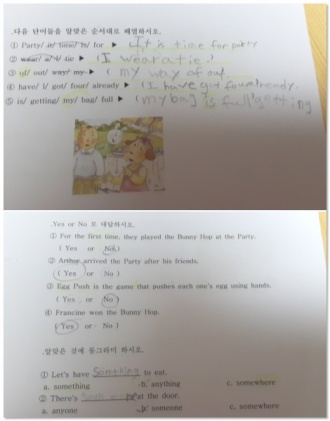 .다음 단어들을 알맞은 순서대로 배열하시오.
① Party/ it/ time/ is/ for ▶ It is time for party
② wear/ a/ I/ tie ▶ (I wear a tie.)
③ of/ out/ way/ my ▶ ( my way of out.
④ have/ I/ got/ four/ already ▶ (I have got four already.
⑤ is/ getting/ my/ bag/ full ▶ (my bag is full getting
.Yes or No 로 대답하시오.
① For the first time, they played the Bunny Hop at the Party.
( Yes or No )
② Arthur arrived the Party after his friends.
( Yes or No )
③ Egg Push is the game that pushes each one's egg using hands.
( Yes or No )
④ Francine won the Bunny Hop.
( Yes or No )
.알맞은 것에 동그라미 하시오.
① Let's have Something to eat.
a. something b. anything c. somewhere
② There's at the door.
a. anyone b. someone c. somewhere